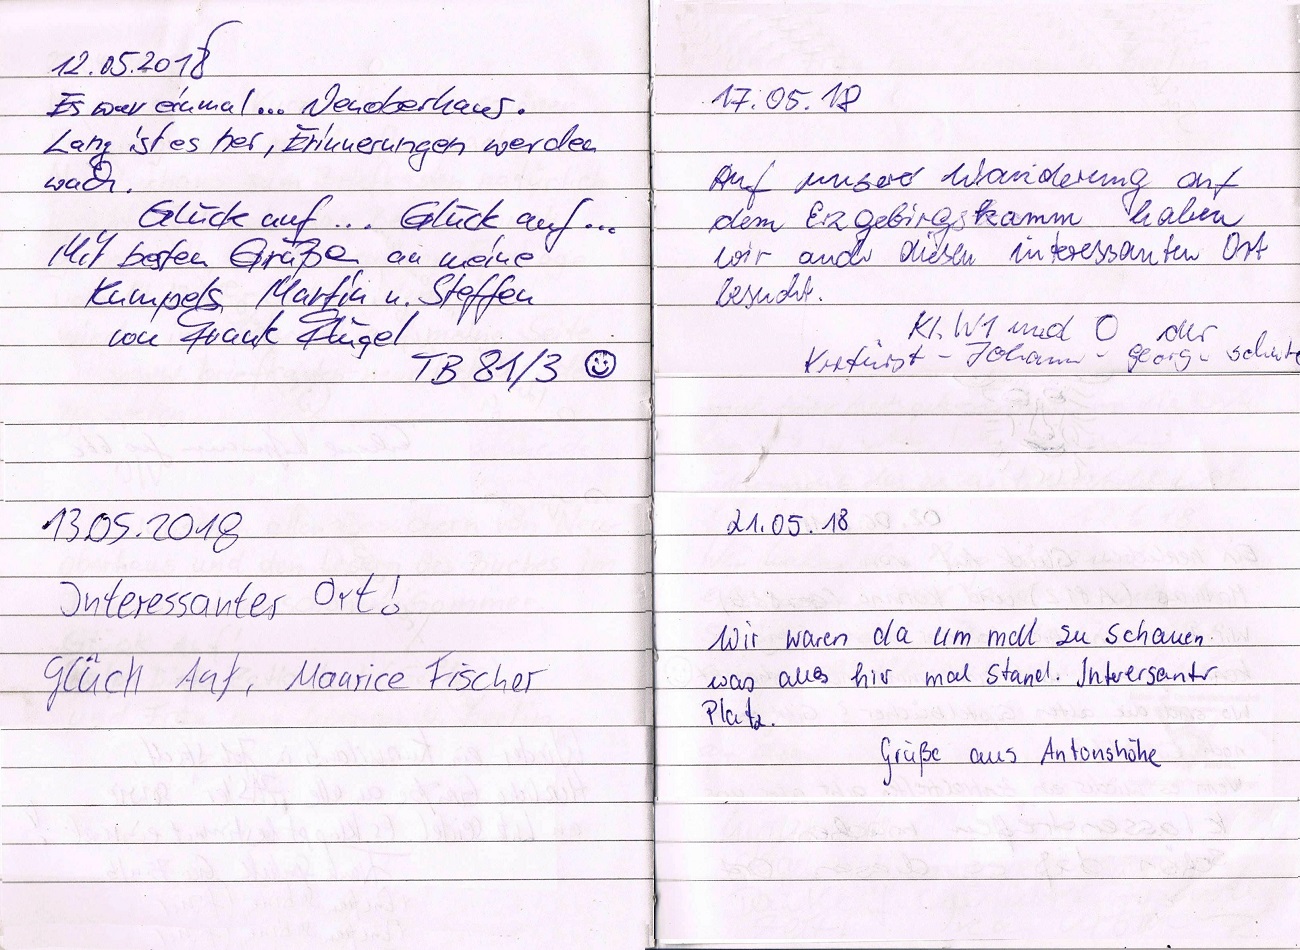 12.05.2018
Es war einmal... Neuoberhaus.
Lang ist es her, Erinnerungen werden
wach.
Glück auf... Glück auf...
Mit besten Grüßen an meine
Kumpels Martin u. Steffen
von Frank Flügel
TB 81/3
13.05.2018
Interessanter Ort!
Glück Auf, Maurice Fischer
17.05.18
Auf unserer Wanderung auf
dem Erzgebirgskamm haben
wir auch diesen interessanten Ort
besucht.
Kl. W1 und O der
Kurfürst-Johann-georg-schule
21.05.18
Wir waren da um mall zu schauen.
was alles hir mal Stand. Interersantr
Platz.
Grüße aus Antonshöhe